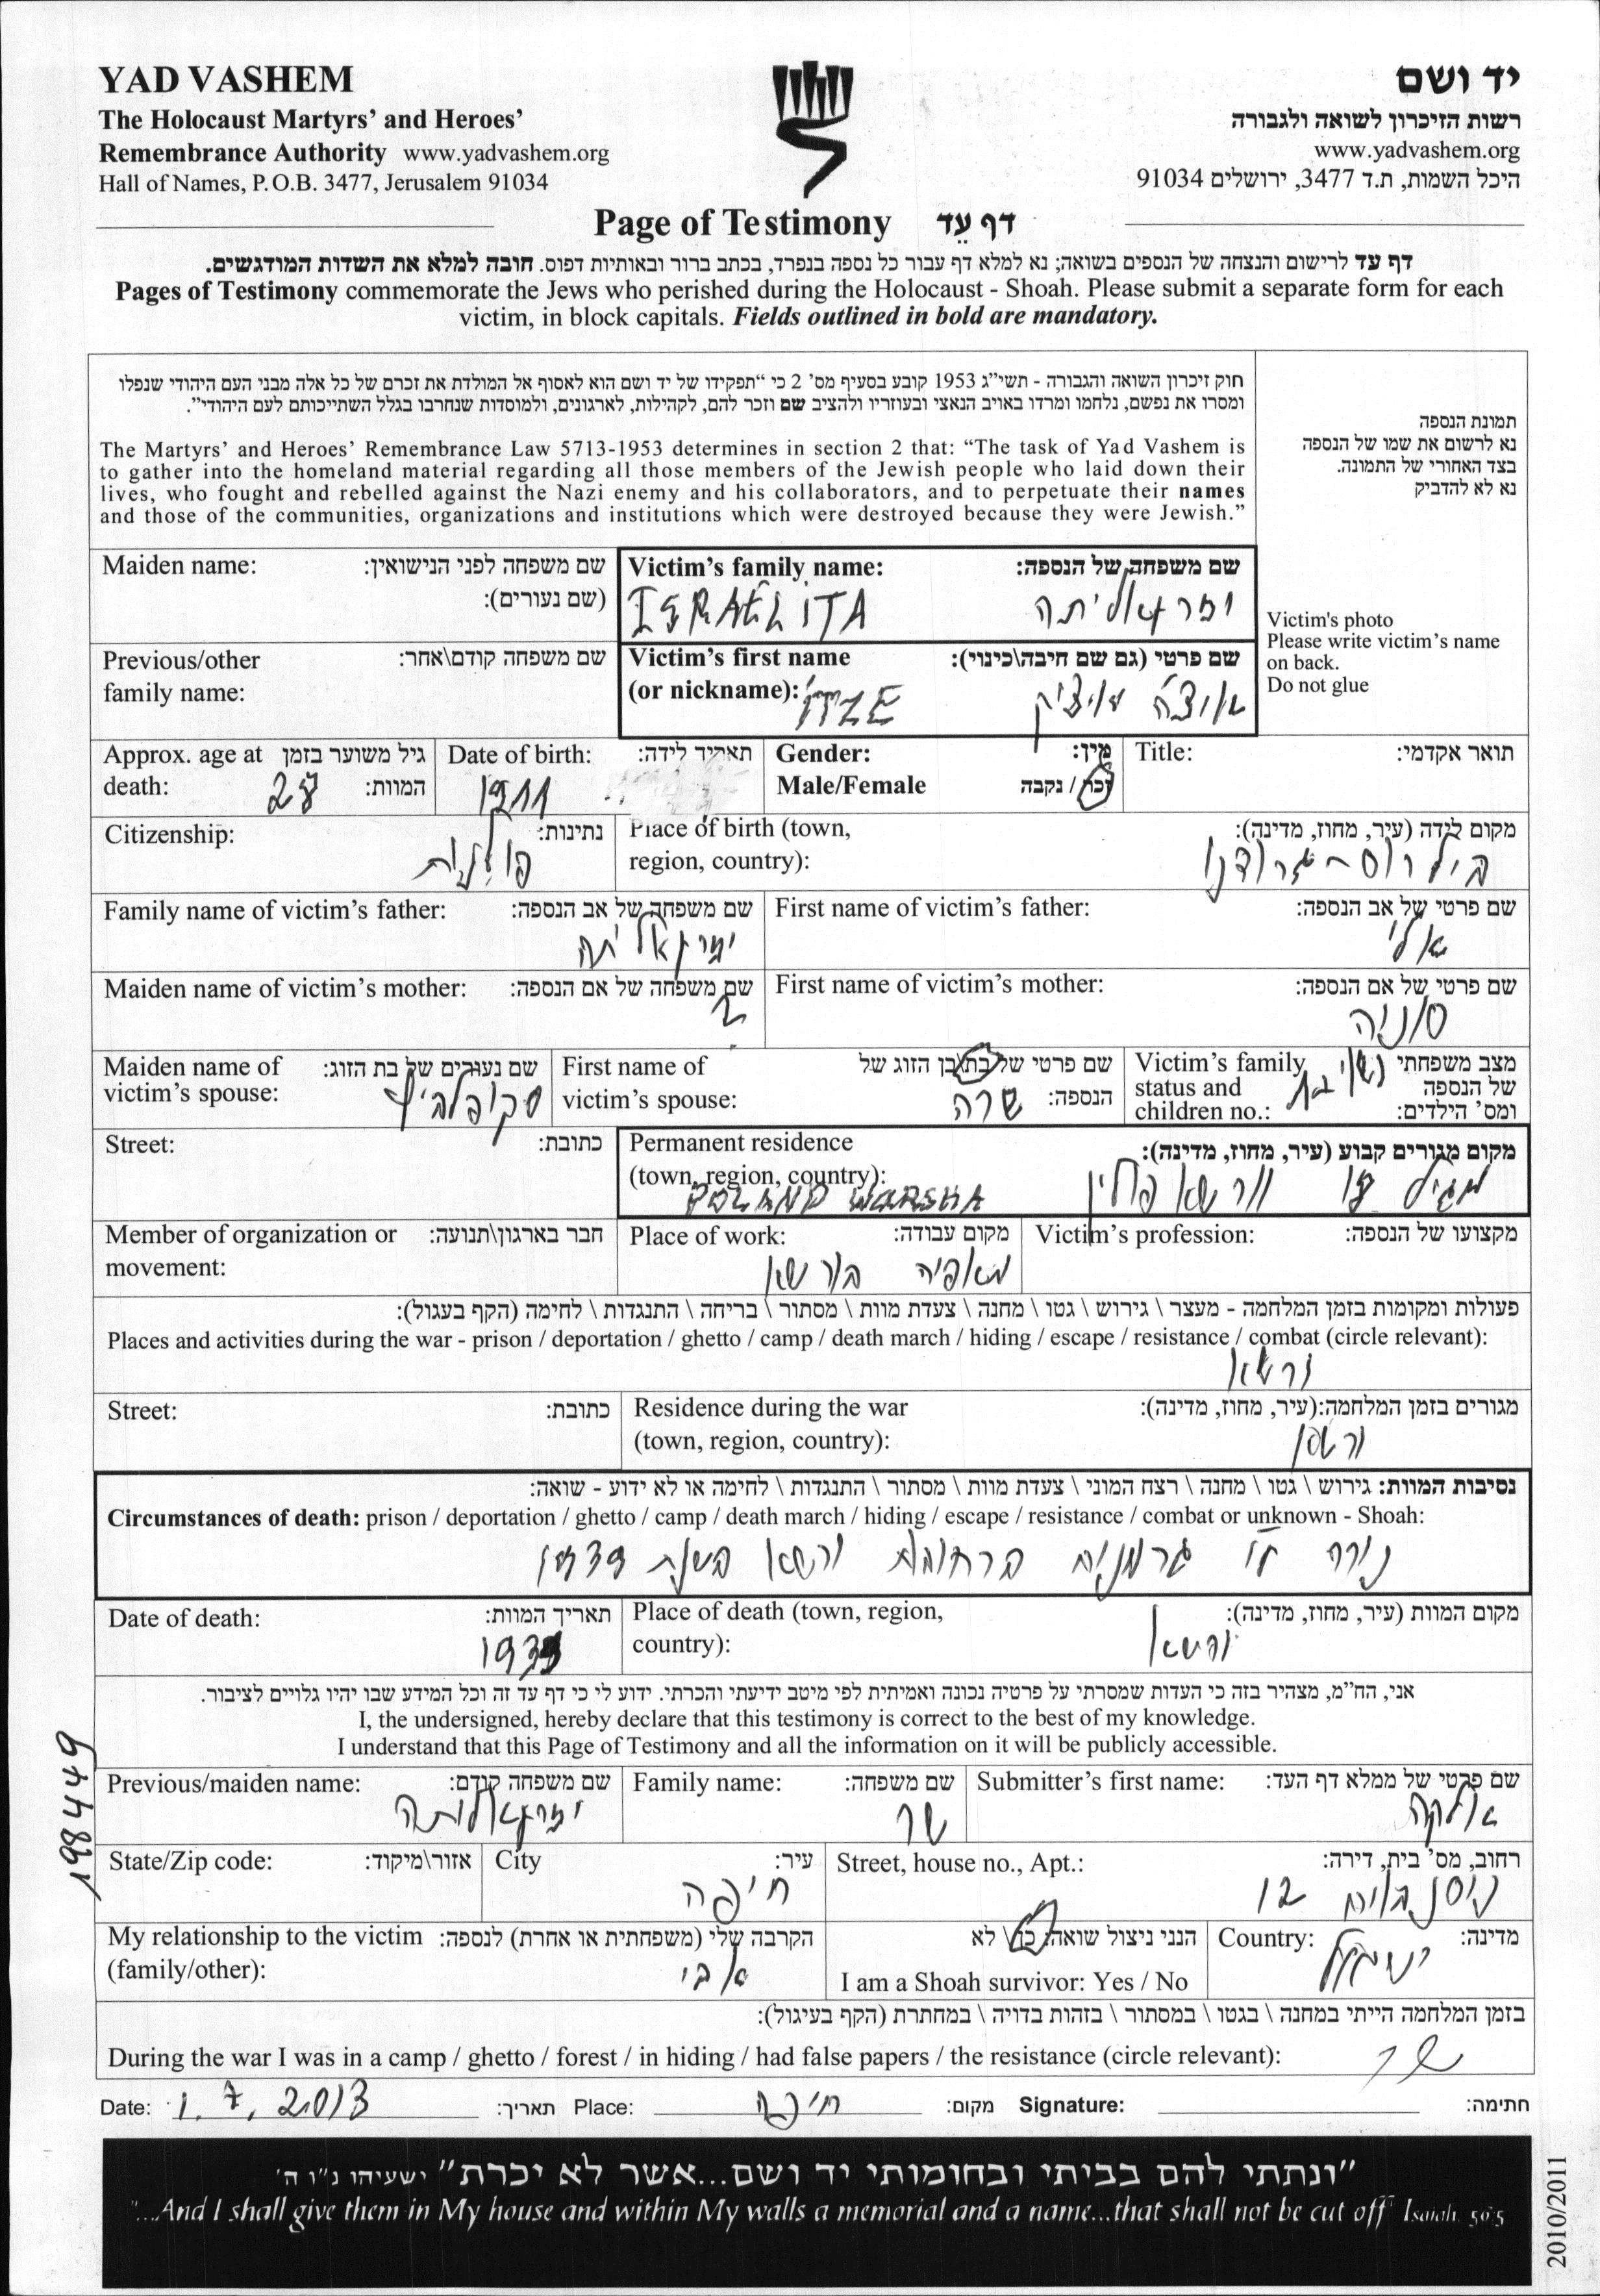 YAD VASHEM
The Holocaust Martyrs’ and Heroes’
Remembrance Authority www.yadvashem.org
Hall of Names, P.O.B. 3477, Jerusalem 91034
יד ושם
רשות הזיכרון לשואה ולגבורה
www.yadvashem.org
היכל השמות, ת.ד 3477, ירושלים 91034
Page of Testimony דף עֵד
דף עד לרישום והנצחה של הנספים בשואה; נא למלא דף עבור כל נספה בנפרד, בכתב ברור ובאותיות דפוס. חובה למלא את השדות המודגשים.
Pages of Testimony commemorate the Jews who perished during the Holocaust - Shoah. Please submit a separate form for each
victim, in block capitals. Fields outlined in bold are mandatory.
חוק זיכרון השואה והגבורה - תשי״ג 1953 קובע בסעיף מס׳ 2 כי “תפקידו של יד ושם הוא לאסוף אל המולדת את זכרם של כל אלה מבני העם היהודי שנפלו
ומסרו את נפשם, נלחמו ומרדו באויב הנאצי ובעוזריו ולהציב שם וזכר להם, לקהילות, לארגונים, ולמוסדות שנחרבו בגלל השתייכותם לעם היהודי”.
The Martyrs’ and Heroes’ Remembrance Law 5713-1953 determines in section 2 that: “The task of Yad Vashem is
to gather into the homeland material regarding all those members of the Jewish people who laid down their
lives, who fought and rebelled against the Nazi enemy and his collaborators, and to perpetuate their names
and those of the communities, organizations and institutions which were destroyed because they were Jewish.”
תמונת הנספה
נא לרשום את שמו של הנספה
בצד האחורי של התמונה.
נא לא להדביק
Victim's photo
Please write victim’s name
on back.
Do not glue
Maiden name: שם משפחה לפני הנישואין:
(שם נעורים):
Victim’s family name: שם משפחה של הנספה:
ISRAELITA יזראליתה
Previous/other שם משפחה קודם\אחר:
family name:
Victim’s first name שם פרטי (גם שם חיבה\כינוי):
(or nickname): ITZE איצה איציק
Approx. age at גיל משוער בזמן
death: 28 המוות:
Date of birth: תאריך לידה:
1911
Gender: מין:
Male/Female זכר / נקבה
Title: תואר אקדמי:
Citizenship: נתינות:
פולנית
Place of birth (town, מקום לידה (עיר, מחוז, מדינה):
region, country): בילרוס - גרודנו
Family name of victim’s father: שם משפחה של אב הנספה:
יזראליתה
First name of victim’s father: שם פרטי של אב הנספה:
אלי
Maiden name of victim’s mother: שם משפחה של אם הנספה:
First name of victim’s mother: שם פרטי של אם הנספה:
סוניה
Maiden name of שם נעורים של בת הזוג:
victim’s spouse: סקופלביץ
First name of שם פרטי של בת\בן הזוג של
victim’s spouse: הנספה: שרה
Victim’s family מצב משפחתי נשוי
status and של הנספה בת
children no.: ומס׳ הילדים:
Street: כתובת:
Permanent residence מקום מגורים קבוע (עיר, מחוז, מדינה):
(town, region, country):
POLAND WARSHA וורשא פולין
Member of organization or חבר בארגון\תנועה:
movement:
Place of work: מקום עבודה:
מאפיה בורשא
Victim’s profession: מקצועו של הנספה:
פעולות ומקומות בזמן המלחמה - מעצר \ גירוש \ גטו \ מחנה \ צעדת מוות \ מסתור \ בריחה \ התנגדות \ לחימה (הקף בעגול):
Places and activities during the war - prison / deportation / ghetto / camp / death march / hiding / escape / resistance / combat (circle relevant):
ורשא
Street: כתובת:
Residence during the war מגורים בזמן המלחמה:(עיר, מחוז, מדינה):
(town, region, country): ורשא
נסיבות המוות: גירוש \ גטו \ מחנה \ רצח המוני \ צעדת מוות \ מסתור \ התנגדות \ לחימה או לא ידוע - שואה:
Circumstances of death: prison / deportation / ghetto / camp / death march / hiding / escape / resistance / combat or unknown - Shoah:
נורה ע״י גרמנים ברחובות ורשא בשנת 1939
Date of death: תאריך המוות:
1939
Place of death (town, region, מקום המוות (עיר, מחוז, מדינה):
country): ורשא
אני, הח״מ, מצהיר בזה כי העדות שמסרתי על פרטיה נכונה ואמיתית לפי מיטב ידיעתי והכרתי. ידוע לי כי דף עד זה וכל המידע שבו יהיו גלויים לציבור.
I, the undersigned, hereby declare that this testimony is correct to the best of my knowledge.
I understand that this Page of Testimony and all the information on it will be publicly accessible.
Previous/maiden name: שם משפחה קודם:
יזראליתה
Family name: שם משפחה:
שר
Submitter’s first name: שם פרטי של ממלא דף העד:
אלקה
State/Zip code: אזור\מיקוד:
City עיר:
חיפה
Street, house no., Apt.: רחוב, מס׳ בית, דירה:
12
My relationship to the victim הקרבה שלי (משפחתית או אחרת) לנספה:
(family/other): אבי
הנני ניצול שואה: כן\ לא
I am a Shoah survivor: Yes / No
Country: מדינה:
ישראל
בזמן המלחמה הייתי במחנה \ בגטו \ במסתור \ בזהות בדויה \ במחתרת (הקף בעיגול):
During the war I was in a camp / ghetto / forest / in hiding / had false papers / the resistance (circle relevant):
Date: 1.7.2013 תאריך: Place: חיפה מקום: Signature: חתימה:
“ונתתי להם בביתי ובחומותי יד ושם...אשר לא יכרת” ישעיהו נ״ו ה׳
“...And I shall give them in My house and within My walls a memorial and a name...that shall not be cut off” Isaiah 56:5
2010/2011